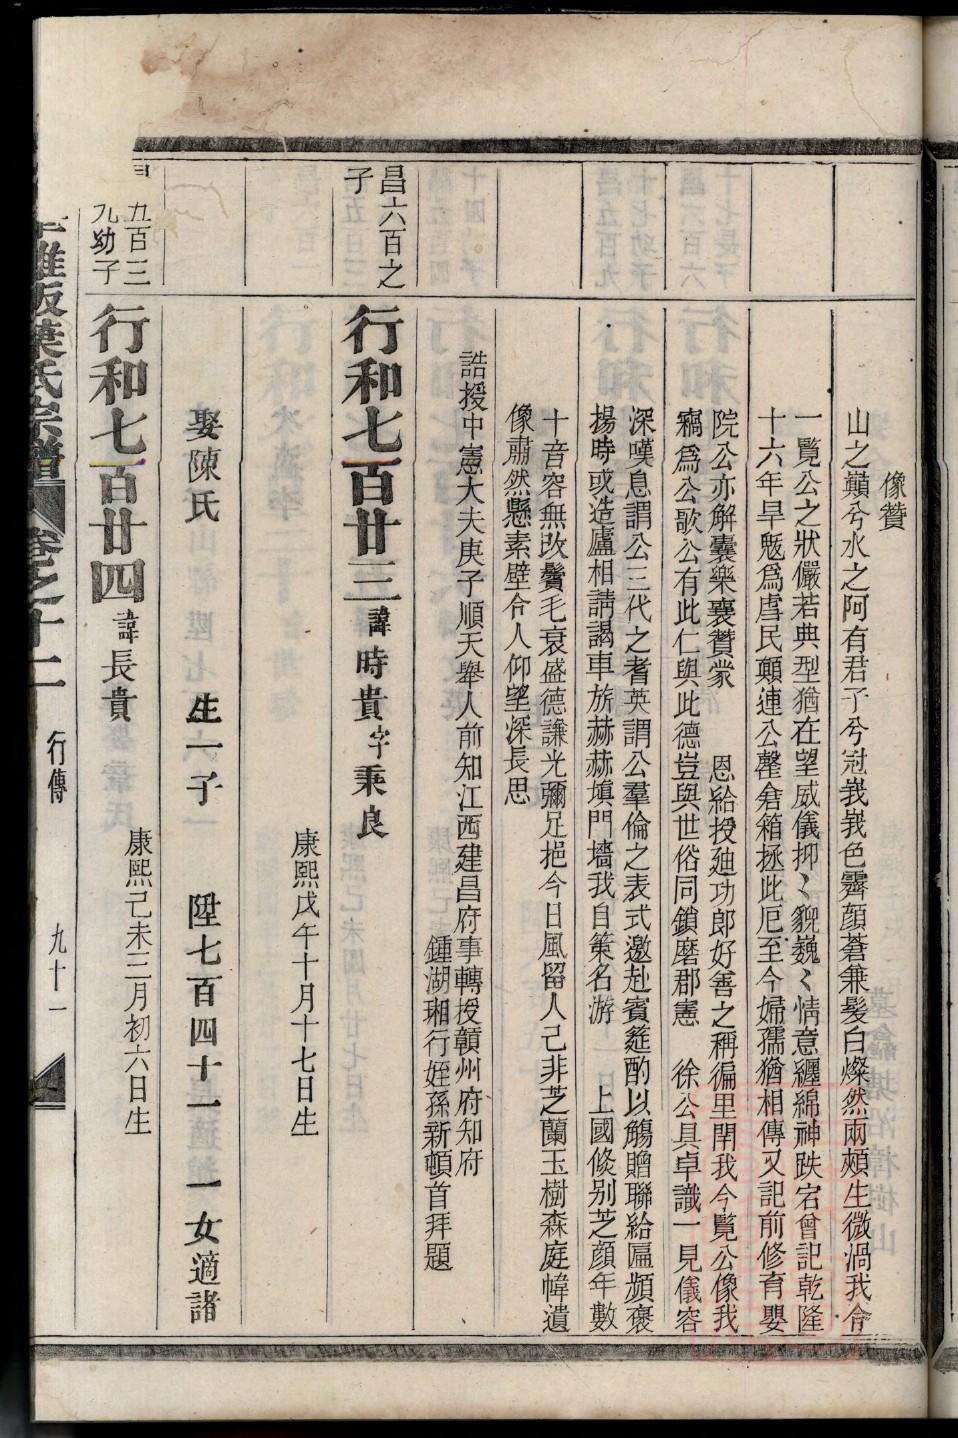 像贊
山之巔兮水之阿有君子兮冠峩峩色霽顏蒼兼髮白燦然兩頰生微渦我今
一覽公之狀儼若典型猶在望威儀抑〻貌巍〻情意纏綿神跌宕曾記乾隆
十六年旱魃為虐民顛連公罄倉箱拯此厄至今婦孺猶相傳又記前修育嬰
院公亦解囊樂襄贊蒙　恩給授廸功郎好善之稱徧里閈我今覽公像我
竊為公歌公有此仁與此德豈與世俗同鎖磨郡憲　徐公具卓識一見儀容
深嘆息謂公三代之耆英謂公羣倫之表式邀赴賓筵酌以觴贈聯給匾頻褒
揚時或造廬相請謁車旂赫赫塡門墻我自策名游　上國倐别芝顏年數
十音容無改鬢毛衰盛德謙光彌足挹今日風留人已非芝蘭玉樹森庭幃遺
像肅然懸素壁令人仰望深長思
誥授中憲大夫庚子順天舉人前知江西建昌府事轉授贛州府知府
鍾湖琱行姪孫新頓首拜題
昌六百之
子
行和七百廿三 諱時貴字秉良
康熙戊午十月十七日生
娶陳氏　生一子　陞七百四十一　一女適諸
九百三
九幼子
行和七百廿四 諱長貴
康熙己未三月初六日生
雅坂葉氏宗譜 卷之十二 行傳 九十一